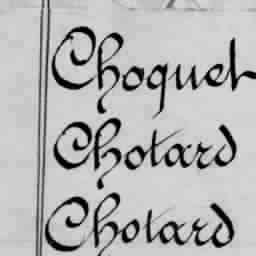 Choquet
Chotard
Chotard